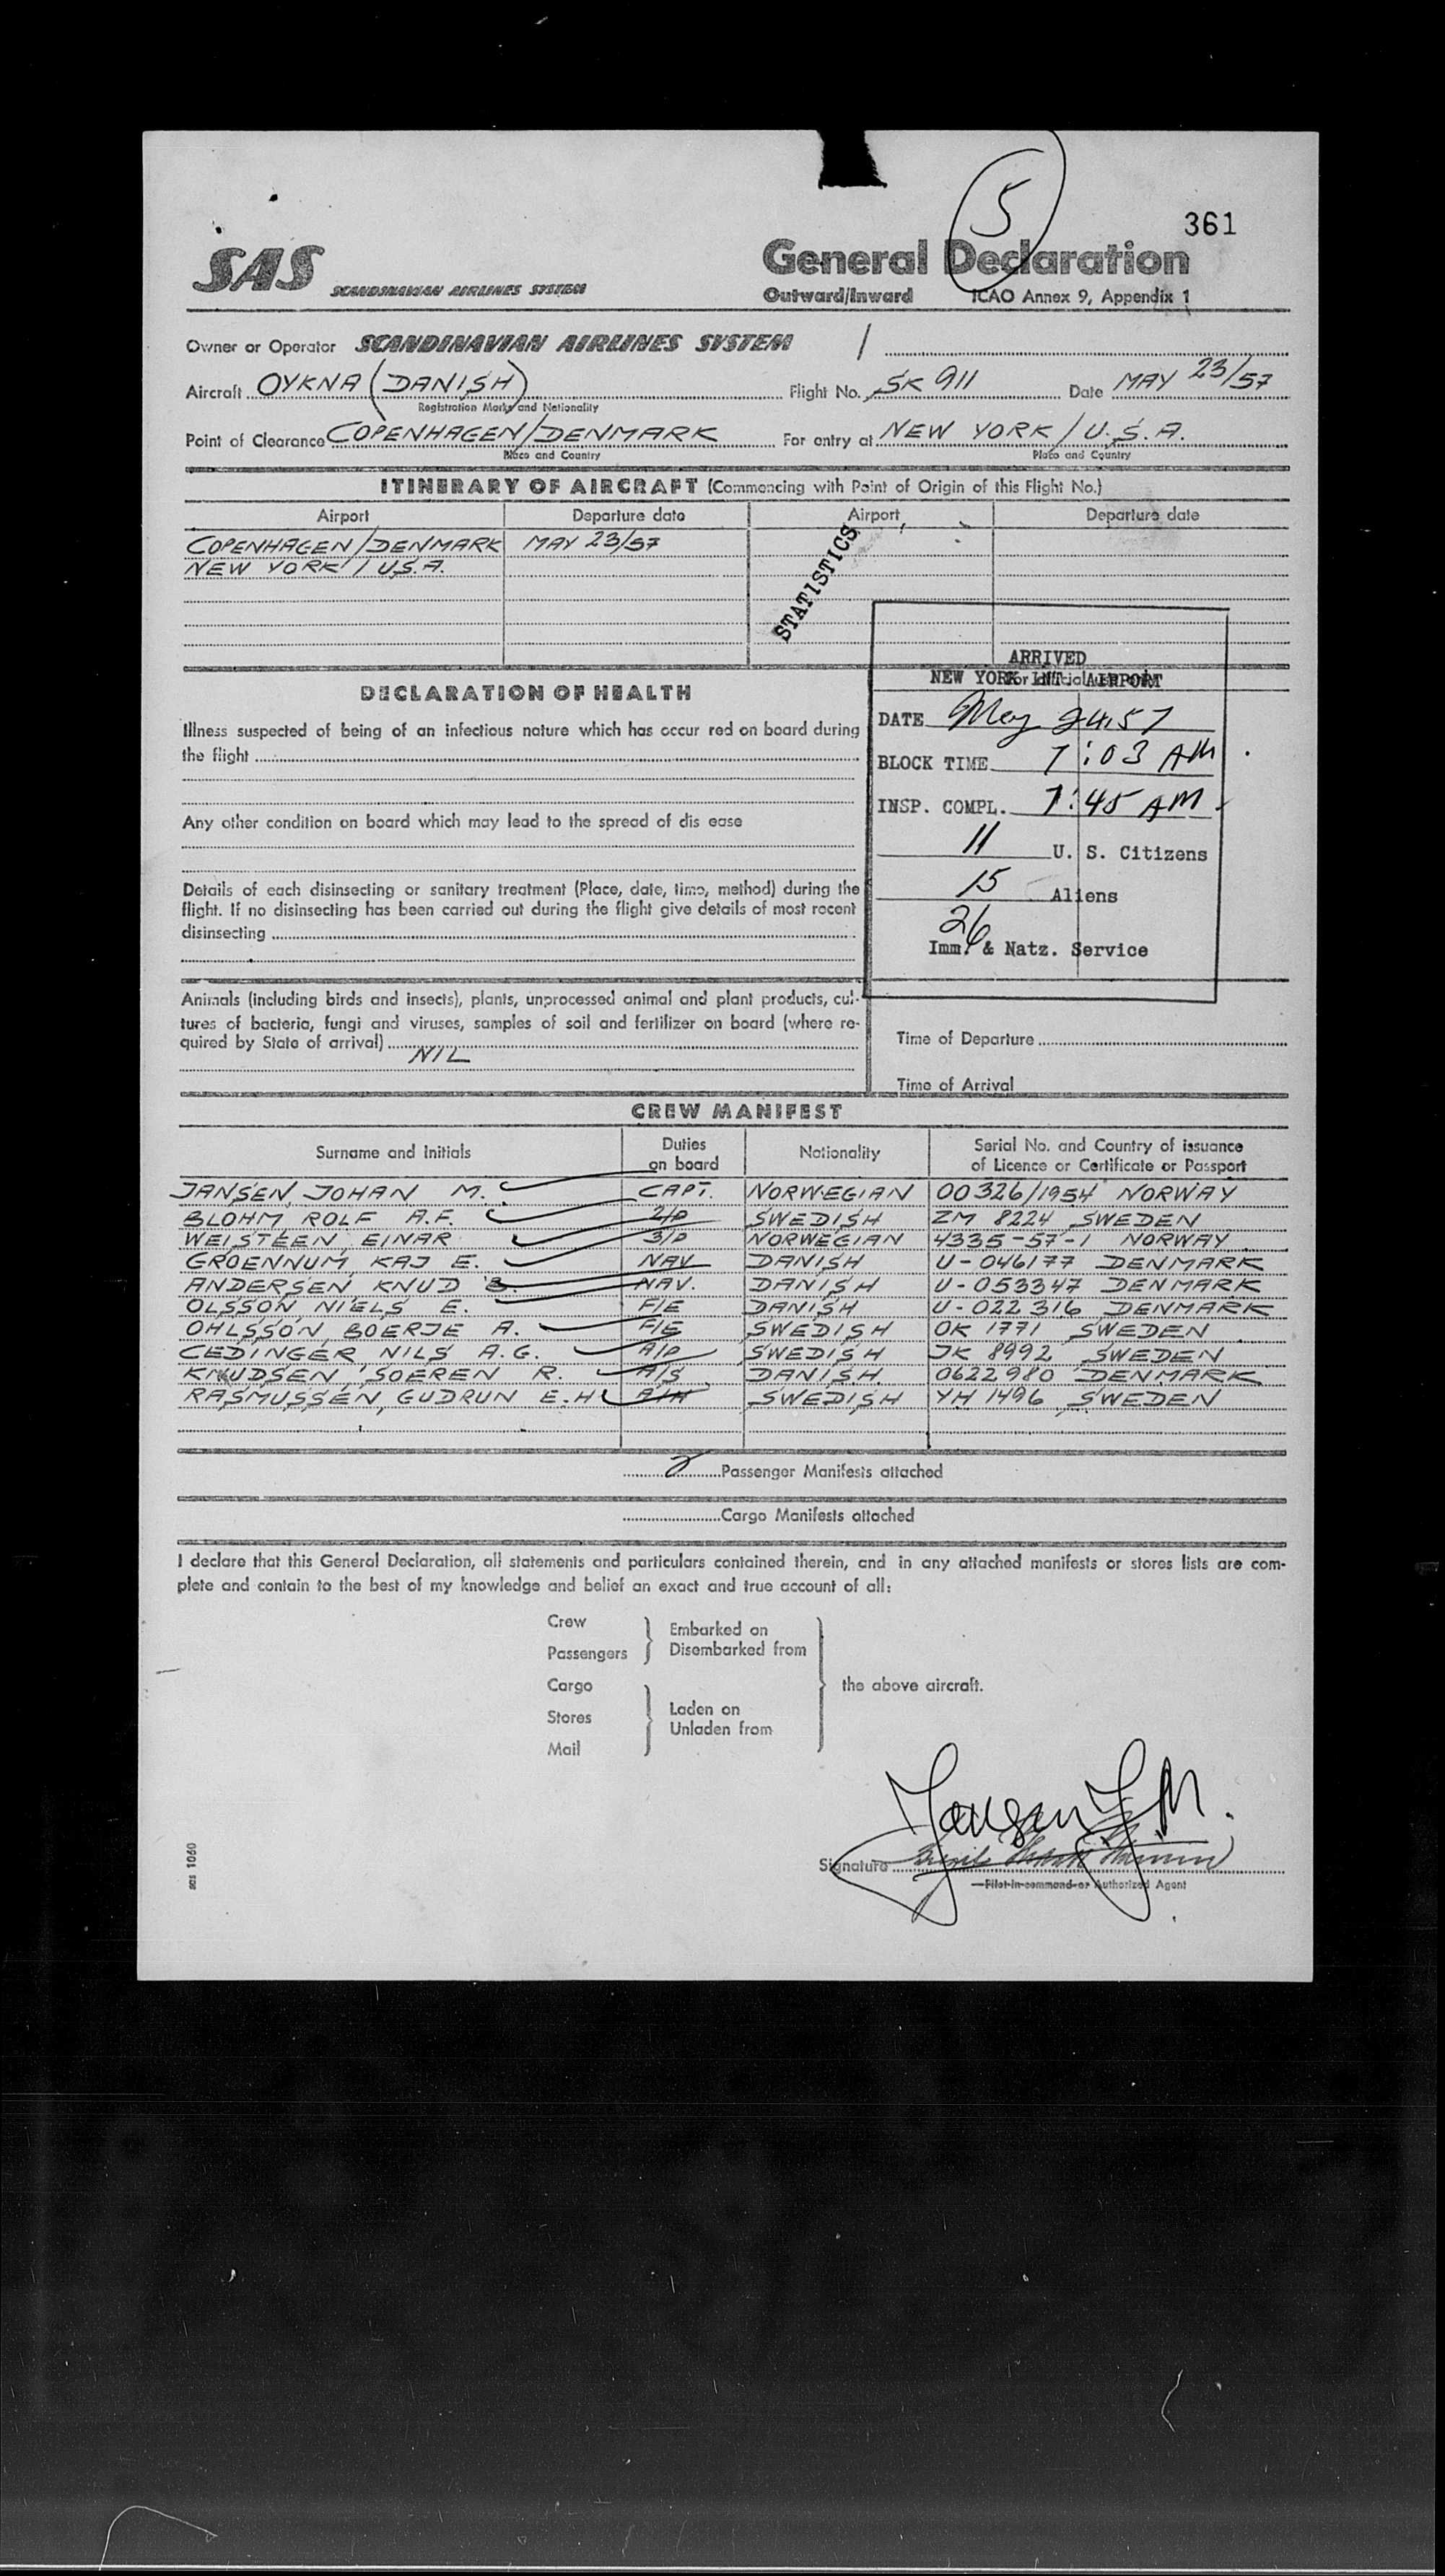 5
361
SAS SCANDINAVIAN AIRLINES SYSTEM
General Declaration
Outward/Inward ICAO Annex 9, Appendix 1
Owner or Operator SCANDINAVIAN AIRLINES SYSTEM /
Aircraft OYKNA (DANISH) Flight No. SK 911 Date MAY 23/57
Registration Marks and Nationality
Point of Clearance COPENHAGEN/DENMARK For entry at NEW YORK / U.S.A.
Place and Country Place and Country
ITINERARY OF AIRCRAFT (Commencing with Point of Origin of this Flight No.)
Airport Departure date Airport Departure date
COPENHAGEN/DENMARK MAY 23/57
NEW YORK / U.S.A.
STATISTICS
ARRIVED
NEW YORK INT. AIRPORT
DATE May 24.57
BLOCK TIME 7:03 AM
INSP. COMPL. 7:45 AM
11 U. S. Citizens
15 Aliens
26
Imm. & Natz. Service
DECLARATION OF HEALTH
Illness suspected of being of an infectious nature which has occur red on board during
the flight
Any other condition on board which may lead to the spread of dis ease
Details of each disinsecting or sanitary treatment (Place, date, time, method) during the
flight. If no disinsecting has been carried out during the flight give details of most recent
disinsecting
Animals (including birds and insects), plants, unprocessed animal and plant products, cul-
tures of bacteria, fungi and viruses, samples of soil and fertilizer on board (where re-
quired by State of arrival)
NIL
Time of Departure
Time of Arrival
CREW MANIFEST
Surname and Initials Duties on board Nationality Serial No. and Country of issuance of Licence or Certificate or Passport
JANSEN, JOHAN M. CAPT. NORWEGIAN 00326/1954 NORWAY
BLOHM, ROLF A.F. 2/P SWEDISH ZM 8224 SWEDEN
WEISTEEN EINAR 3/P NORWEGIAN 4335-57-1 NORWAY
GROENNUM, KAJ E. NAV DANISH U-046177 DENMARK
ANDERSEN KNUD B. NAV. DANISH U-053347 DENMARK
OLSSON NIELS E. F/E DANISH U-022316 DENMARK
OHLSSON, BOERJE A. F/E SWEDISH OK 1771 SWEDEN
CEDINGER NILS A.G. A/P SWEDISH JK 8992 SWEDEN
KNUDSEN, SOEREN R. A/S DANISH 0622980 DENMARK
RASMUSSEN, GUDRUN E.H. A/H SWEDISH YH 1496 SWEDEN
2 Passenger Manifests attached
Cargo Manifests attached
I declare that this General Declaration, all statements and particulars contained therein, and in any attached manifests or stores lists are com-
plete and contain to the best of my knowledge and belief an exact and true account of all:
Crew
Passengers
Embarked on
Disembarked from
Cargo
Stores
Mail
Laden on
Unladen from
the above aircraft.
Jansen J.M.
Signature
Pilot-in-command or Authorized Agent
sas 1060